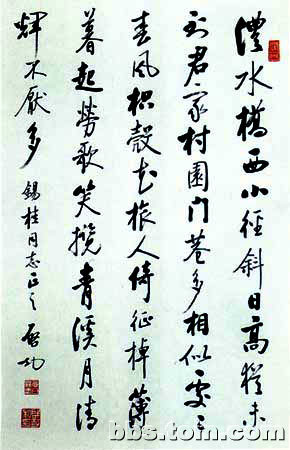 澧水橋西小徑斜日高猶未
到君家村園門巷多相似處々
春風枳殼花旅人倚征棹薄
暮起勞歌笑攬青溪月清
輝不厭多 錫桂同志正之 啟功
bbs.tom.com